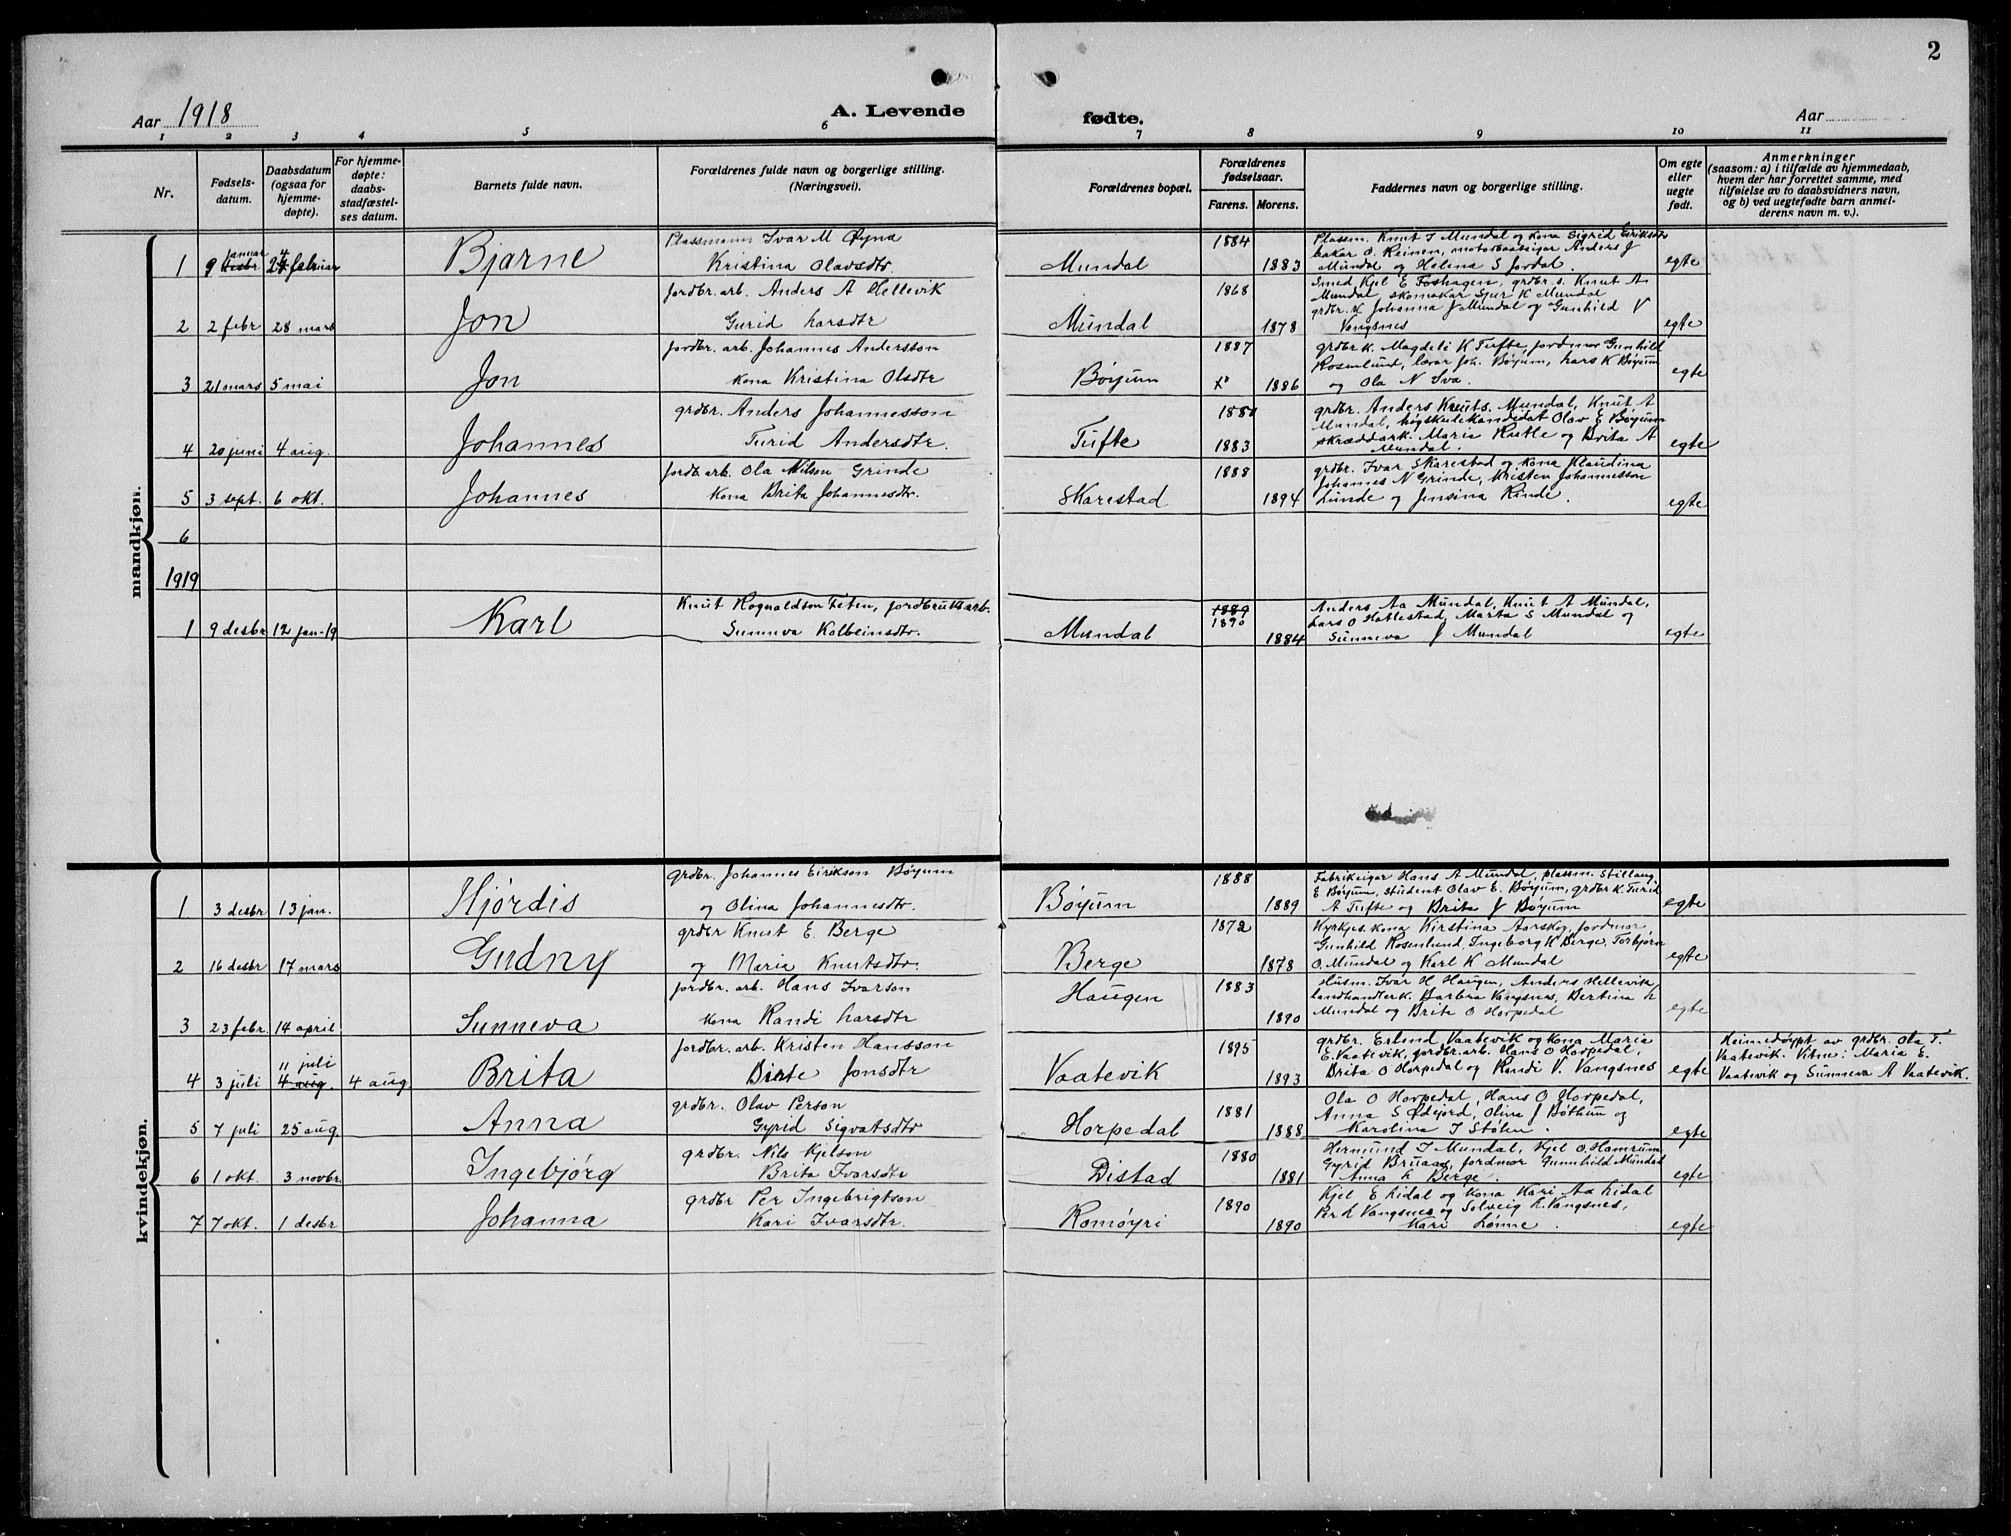 2
Aar 1918
A. Levende
fødte.
Aar
1 2 3 4 5 6 7 8 9 10 11
Nr.
Fødsels-
datum.
Daabsdatum
(ogsaa for
hjemme-
døpte).
For hjemme-
døpte:
daabs-
stadfæstel-
ses datum.
Barnets fulde navn.
Forældrenes fulde navn og borgerlige stilling.
(Næringsvei).
Forældrenes bopæl.
Forældrenes
fødselsaar.
Farens. Morens.
Faddernes navn og borgerlige stilling.
Om egte
eller
uegte
født.
Anmerkninger
(saasom: a) i tilfælde av hjemmedaab,
hvem der har forrettet samme, med
tilføielse av to daabsvidners navn,
og b) ved uegtefødte barn anmel-
derens navn m. v.).
mandkjøn.
Plassmann Ivar M Øyna 1884 Plassm. Knut I Mundal og kona Sigrid Eiriksdtr
januar
1 9 desbr 24 februar Bjarne Kristina Olavsdtr. Mundal 1883 bakar O. Reinen, motorbaateigar Anders J
Mundal og Helena S Jordal. egte
jordbr. arb. Anders A Hellevik 1868 Smed Kjel E Foshagen, grdbr. s. Knut A
Mundal, skomakar Sjur K Mundal
2 2 febr 28 mars Jon Gurid Larsdtr Mundal 1878 grdbr. K Johanna J Mundal og Gunhild V
Vangsnes egte
jordbr. arb. Johannes Anderston 1887 grdbr K. Magdeli K Tufte, jordmor Gunhild
3 21 mars 5 mai Jon kona Kristina Olsdtr Bøyum 1886 Rosenlund, lærar Joh. Bøyum, Lars K Bøyum
og Ola N Sva. egte
grdbr. Anders Johannesson 1881 grdbr. Anders Knuts. Mundal, Knut A
Mundal, høgskulekandidat Olav E Bøyum
4 20 juni 4 aug. Johannes Turid Andersdtr. Tufte 1883 skræddark. Maria Rutle og Brita A
Mundal. egte
jordb. arb. Ola Nilson Grinde 1888 grdbr. Ivar Skarestad og kona Klaudina
5 3 sept. 6 okt. Johannes kona Brita Johannesdtr. Skarestad 1894 Johannes N Grinde, Kristen Johannesson
Lunde og Jensina Rinde. egte
6
1919
Knut Rognaldson Feten, jordbruksarb. 1889 Anders Aa Mundal, Knut A Mundal,
1890
1 9 desbr 12 jan-19 Karl Sunneva Kolbeinsdtr. Mundal 1884 Lars O Hatlestad, Marta S Mundal og
Sunneva J Mundal egte
kvindekjøn.
grdbr. Johannes Eirikson Bøyum 1888 Fabrikeigar Hans A Mundal, plassm. Stillaug
1 3 desbr 13 jan. Hjørdis og Olina Johannesdtr. Bøyum 1889 E Bøyum, student Olav E. Bøyum, grdbr K. Turid
A Tufte og Brita J Bøyum egte
grdbr Knut E. Berge 1872 Kyrkjes. kona Kirstina Aarskog, jordmor
2 16 desbr 17 mars Gudny og Maria Knutsdtr. Berge 1878 Gunhild Rosenlund, Ingeborg K Berge, Torbjørn
O. Mundal og Karl K Mundal egte
jordbr. arb. Hans Ivarson 1883 Husm. Ivar H Haugen, Anders Hellevik,
3 23 febr. 14 april Sunneva kona Randi Larsdtr Haugen 1890 landhandlerk. Barbra Vangsnes, Bertina L
Mundal og Brita O Horpedal egte
jordbr. arb. Kristen Hansson 1895 grdbr. Erlend Vaatevik og kona Maria Heimedøypt av grdbr. Ola T.
11 juli
4 3 juli 4 aug. 4 aug Brita Birte Jonsdtr Vaatevik 1893 E. Vaatevik, jordbr. arb. Hans O Horpedal,
Vaatevik. Vitne: Maria E.
Brita O Horpedal og Randi V. Vangsnes egte Vaatevik og Sunneva A Vaatevik.
grdbr. Olav Person 1881 Ola O Horpedal, Hans O Horpedal,
5 7 juli 25 aug. Anna Gyrid Sigvatsdtr Horpedal 1888 Anna S Ødejord, Olina J Bøthun og
Karolina I Stølen. egte
grdbr. Nils Kjelson 1880 Hermund I Mundal, Kjel O. Hamrum
6 1 okt. 3 novbr. Ingebjørg Brita Ivarsdtr Distad 1881 Gyrid Bruaas, jordmor Gunnhild Mundal
Anna L Berge. egte
grdbr Per Ingebrigtson 1890 Kjel E Lidal og kona Kari Aa Lidal
7 7 okt. 1 desbr Johanna Kari Ivarsdtr. Romøyri 1890 Per L Vangsnes og Solveig L. Vangsnes,
Kari Lønne. egte